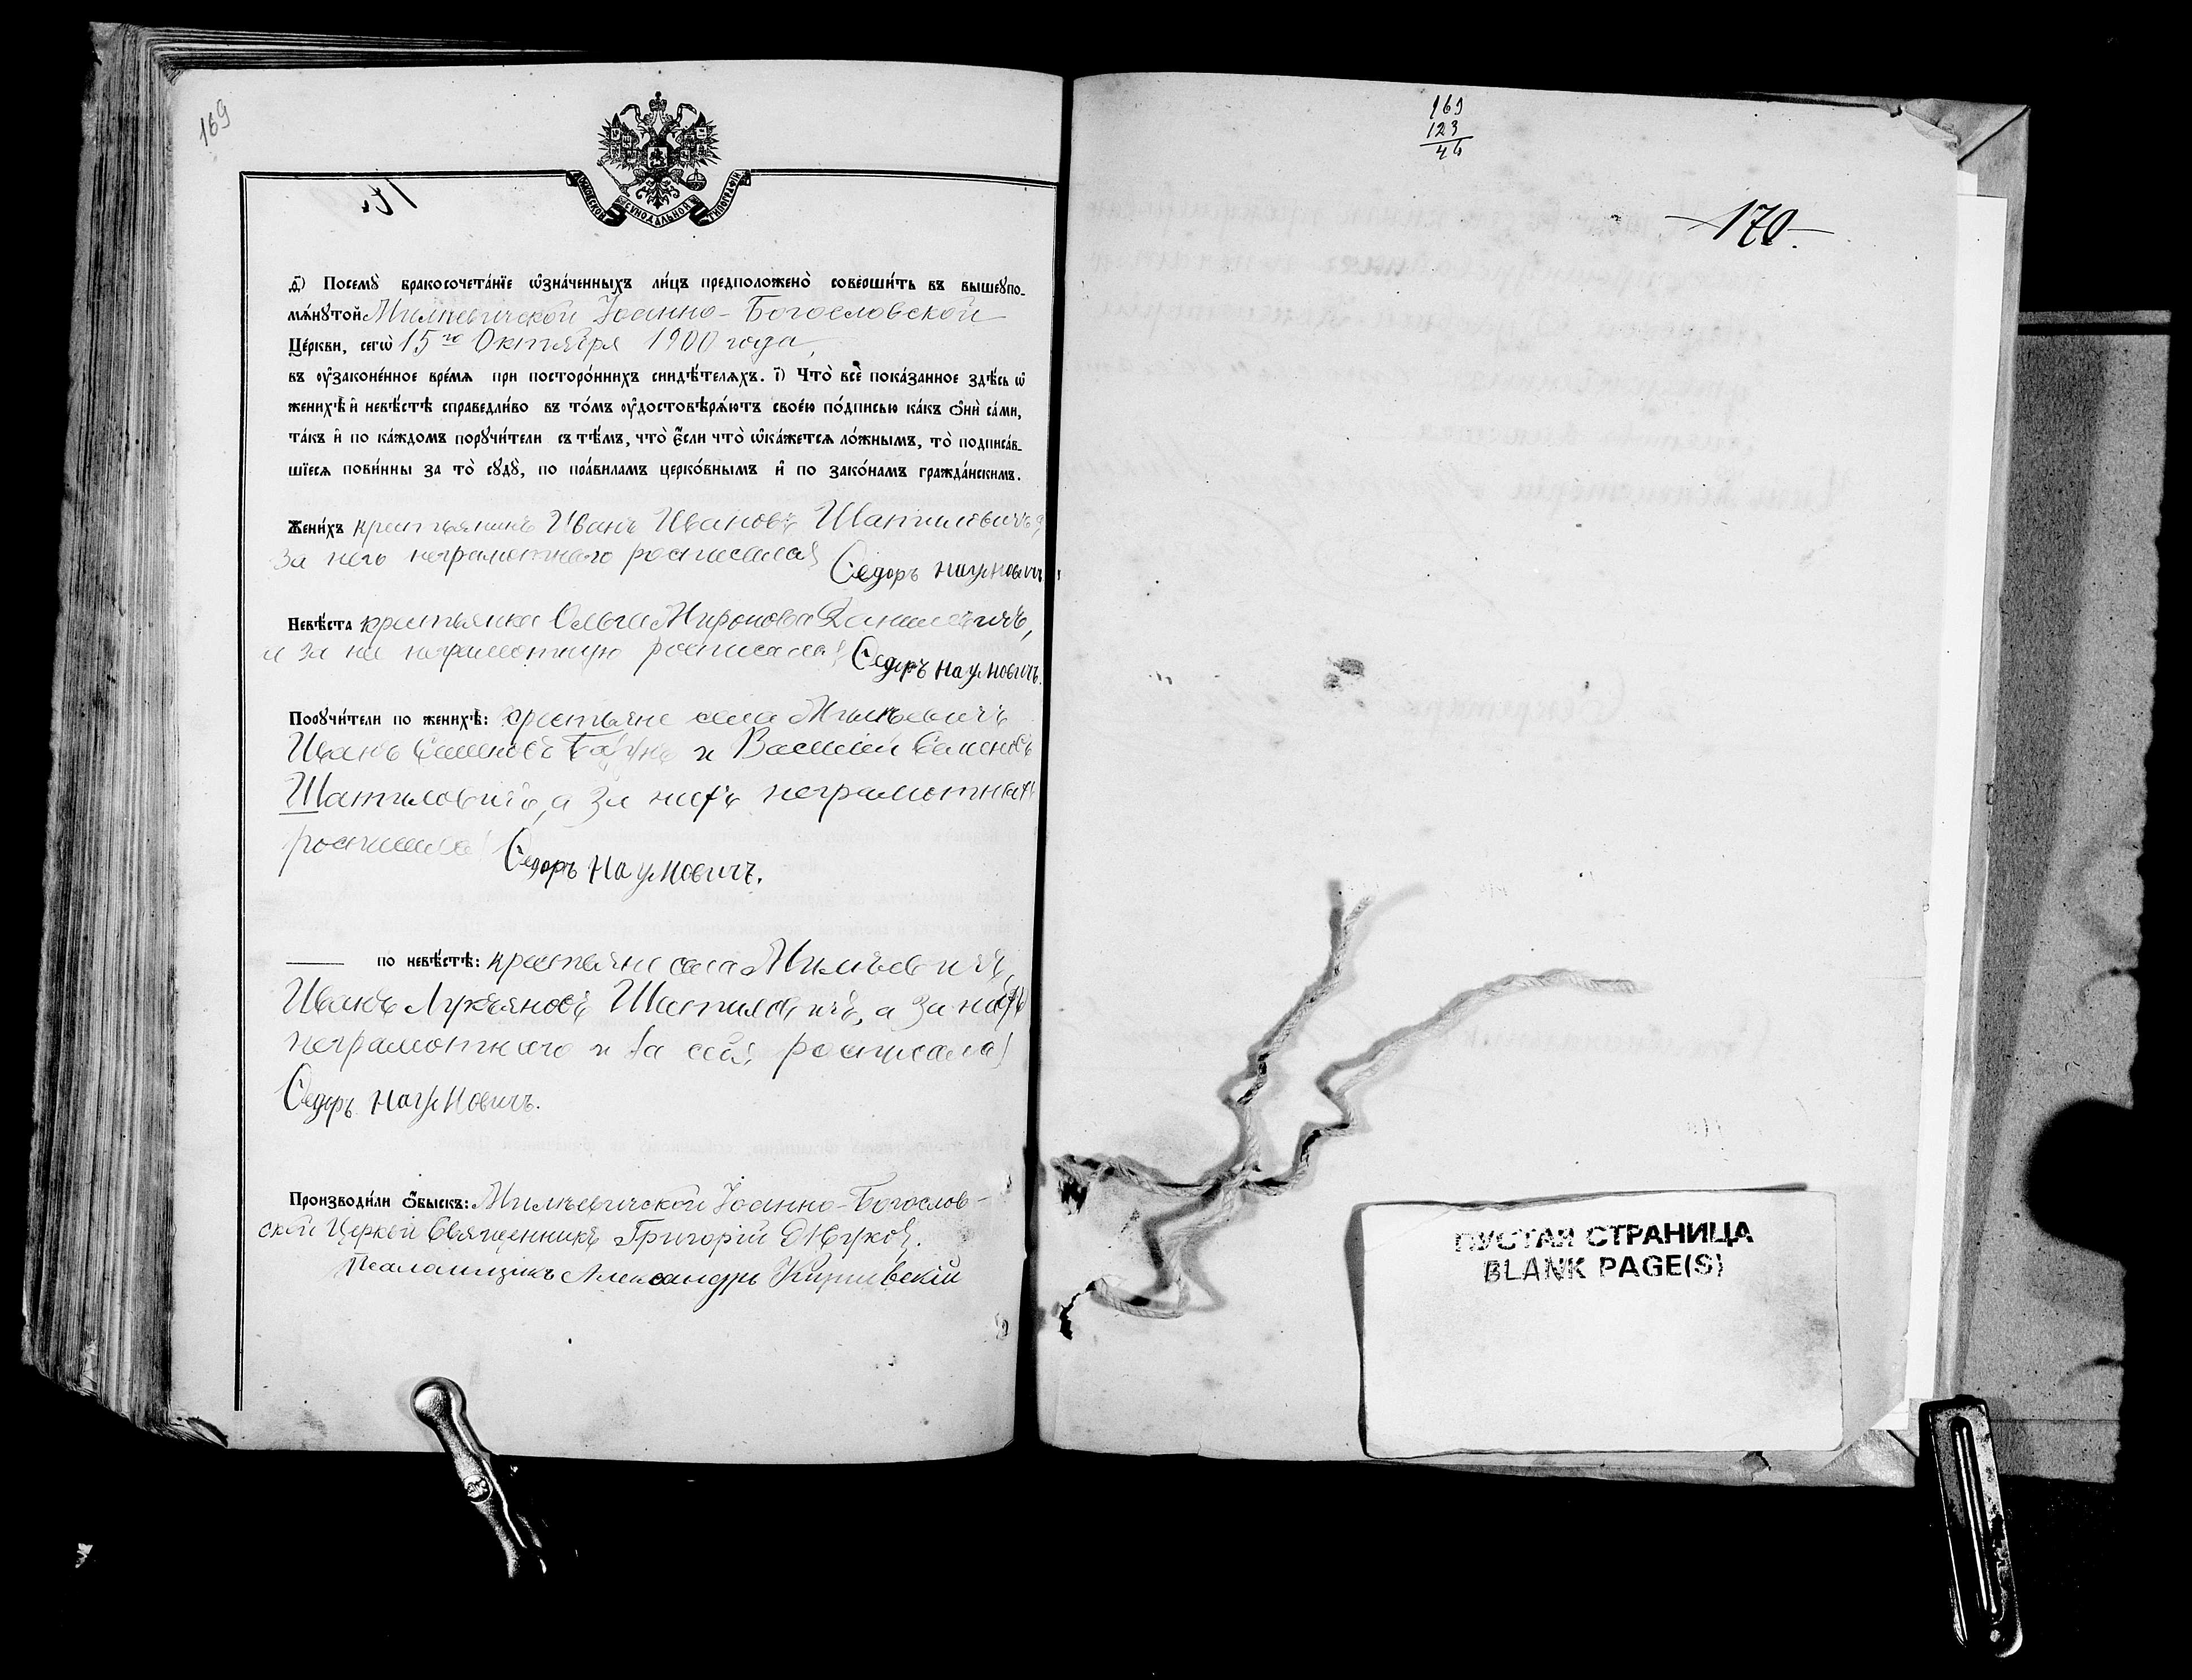 169
МОСКОВСКОЙ СѴНОДАЛЬНОЙ ТИПОГРАФІИ
д҃) Посемꙋ̀ бракосочета́нїе ѡ҆зна́ченныхъ ли́цъ предположено̀ соверши́ть въ вышеꙋпо-
мѧ́нꙋтой Милкевичской Іоанно-Богословской
Це́ркви, сегѡ̀ 15го Октября 1900 года,
въ оу҆зако́ненное вре́мѧ при посторо́ннихъ свидѣ́телѧхъ. і҃) Что̀ всѐ пока́занное здѣ́сь ѡ҆
женихѣ̀ и҆ невѣ́стѣ справедли́во въ то́мъ оу҆достовѣрѧ́ютъ свое́ю по́дписью ка́къ ѻ҆нѝ са́ми,
та́къ и҆ по ка́ждомъ порꙋчи́тели съ тѣ́мъ, что̀ є҆́сли что̀ ѡ҆ка́жетсѧ ло́жнымъ, то̀ подписа́в-
шїесѧ пови́нны за то̀ сꙋдꙋ̀, по пра́виламъ церко́внымъ и҆ по зако́намъ гражда́нскимъ.
Жени́хъ крестьянинъ Иванъ Ивановъ Шатиловичъ, а
за него неграмотнаго росписался Ѳедоръ Наумовичъ.
Невѣ́ста крестьянка Ольга Миронова Данилевичъ,
а за нее неграмотную росписался Ѳедоръ Наумовичъ.
Порꙋчи́тели по женихѣ̀: крестьяне села Милькевичъ
Иванъ Семеновъ и Василій Семеновъ
Шатиловичъ, а за нихъ неграмотныхъ
росписался Ѳедоръ Наумовичъ.
по невѣ́стѣ: крестьяне села Милькевичъ,
Иванъ Лукьяновъ Шатиловичъ, а за него
неграмотнаго и за себя росписался
Ѳедоръ Наумовичъ.
Производи́ли ѻ҆́быскъ: Милькевичской Іоанно-Богослов-
ской Церкви Священникъ Григорій
Псаломщикъ Александръ
169
123
46
170.
ПУСТАЯ СТРАНИЦА
BLANK PAGE(S)